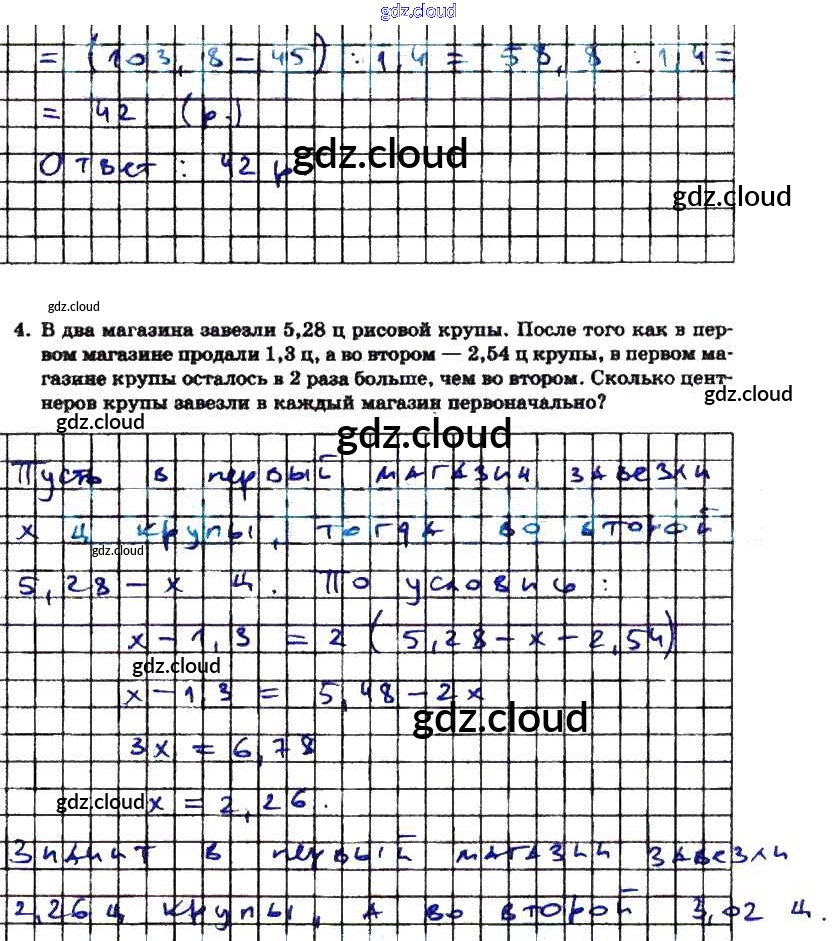 gdz.cloud
= (103,8 − 45) : 1,4 = 58,8 : 1,4 =
= 42 (р.)
Ответ : 42 р
gdz.cloud
gdz.cloud
gdz.cloud
4. В два магазина завезли 5,28 ц рисовой крупы. После того как в пер-
вом магазине продали 1,3 ц, а во втором — 2,54 ц крупы, в первом ма-
газине крупы осталось в 2 раза больше, чем во втором. Сколько цент-
неров крупы завезли в каждый магазин первоначально?
gdz.cloud
gdz.cloud
gdz.cloud
Пусть в первый магазин завезли
х ц крупы, тогда во второй
gdz.cloud
5,28 − х ц. По условию :
х − 1,3 = 2 (5,28 − х − 2,54)
gdz.cloud
х − 1,3 = 5,48 − 2х
gdz.cloud
3х = 6,78
gdz.cloud
х = 2,26.
Значит в первый магазин завезли
2,26 ц крупы, а во второй 3,02 ц.